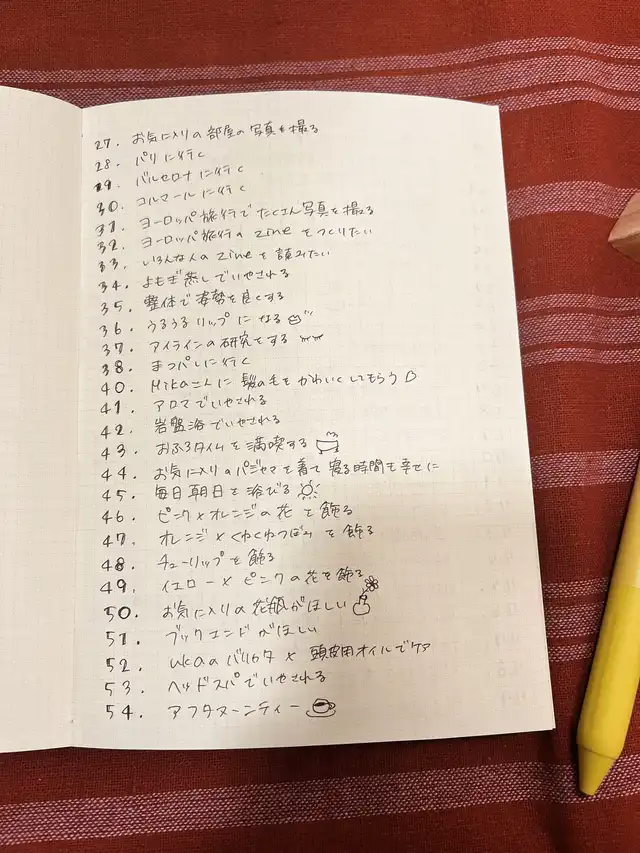 27. お気に入りの部屋の写真を撮る
28. パリに行く
29. バルセロナに行く
30. コルマールに行く
31. ヨーロッパ旅行でたくさん写真を撮る
32. ヨーロッパ旅行の zine をつくりたい
33. いろんな人の zine を読みたい
34. よもぎ蒸しでいやされる
35. 整体で姿勢を良くする
36. うるうるリップになる
37. アイラインの研究をする
38. まつパしに行く
40. Mikaさんに髪の毛をかわいくしてもらう
41. アロマでいやされる
42. 岩盤浴でいやされる
43. おふろタイムを満喫する
44. お気に入りのパジャマを着て寝る時間も幸せに
45. 毎日朝日を浴びる
46. ピンク×オレンジの花を飾る
47. オレンジ×くねくねつぼみを飾る
48. チューリップを飾る
49. イエロー×ピンクの花を飾る
50. お気に入りの花瓶がほしい
51. ブックエンドがほしい
52. ukaのバリカタ×頭皮用オイルでケア
53. ヘッドスパでいやされる
54. アフタヌーンティー